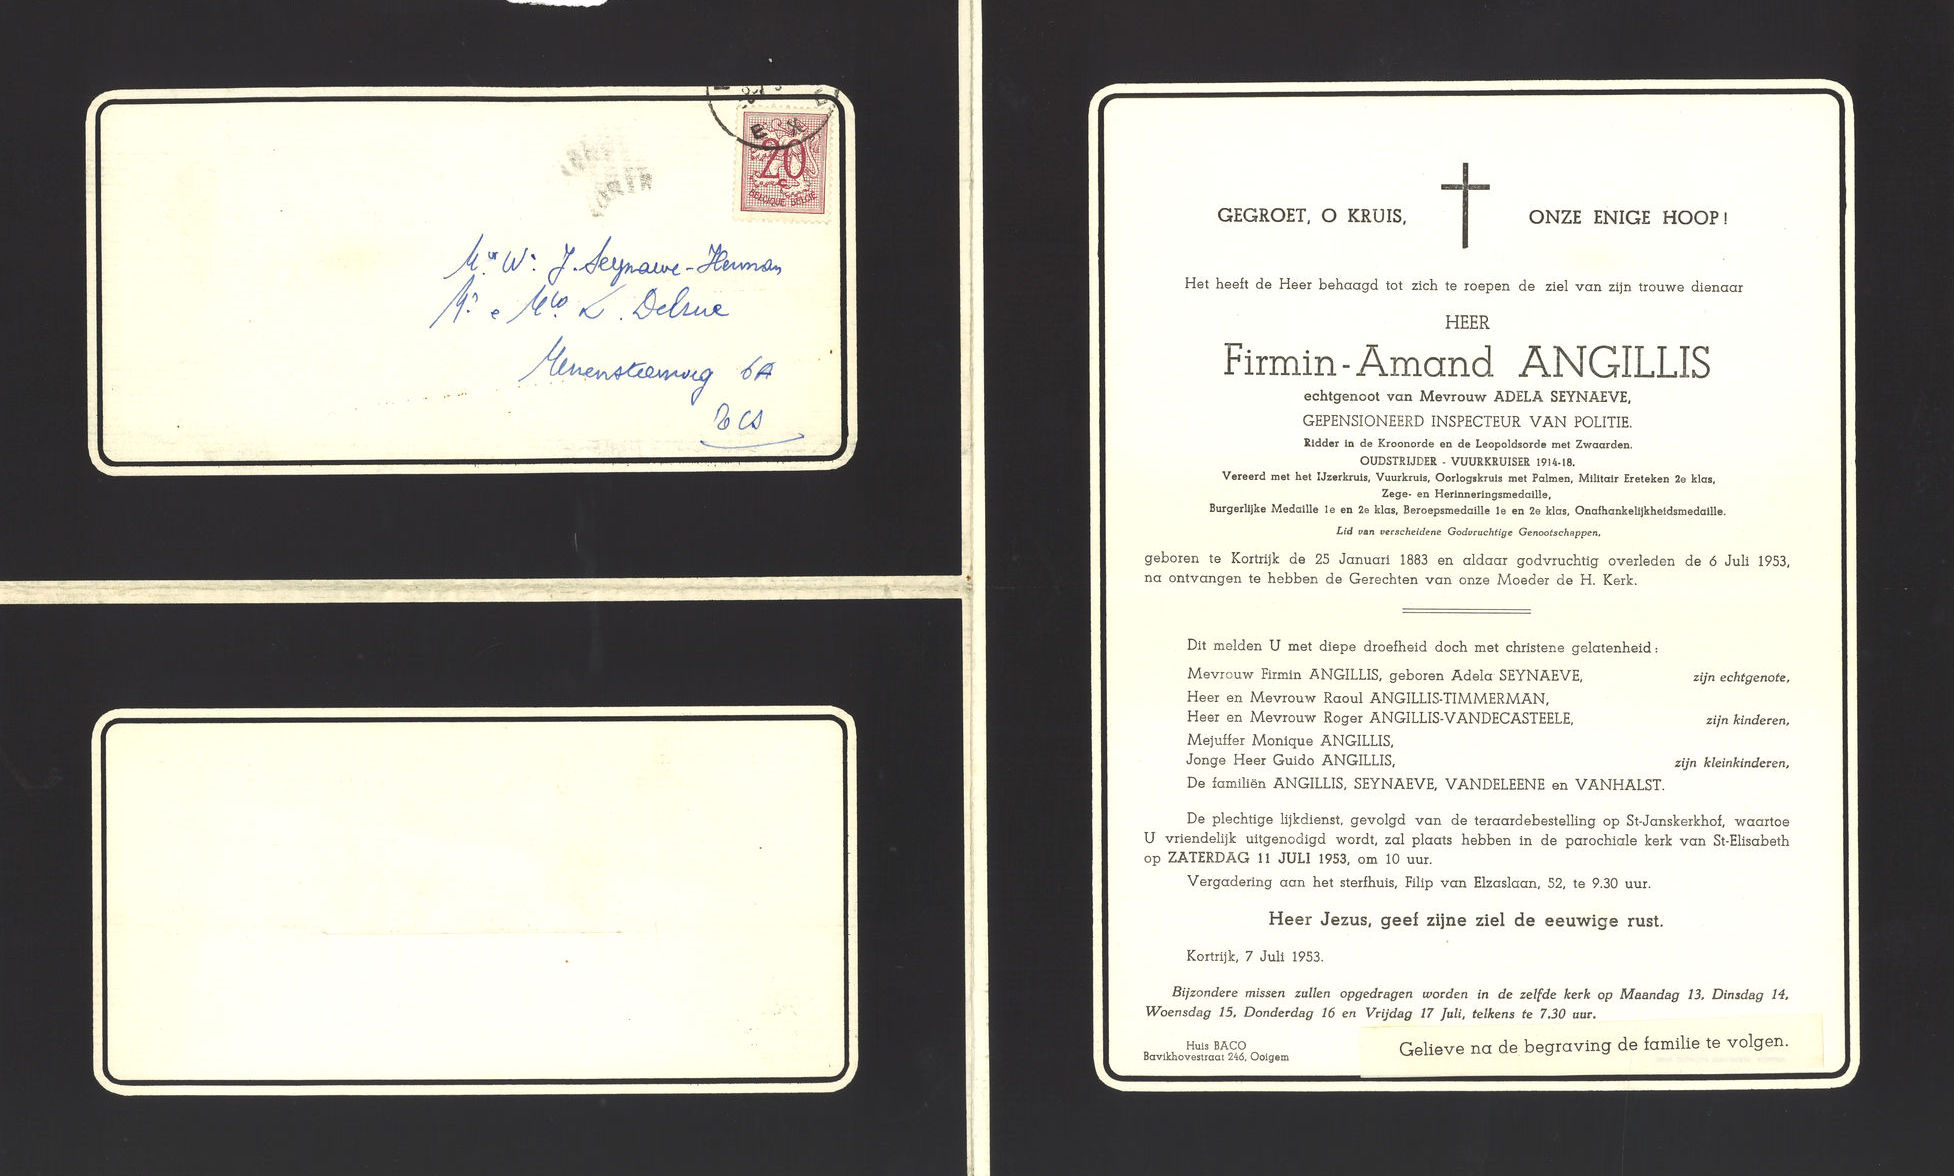 20
c
BELGIQUE BELGIË
J. Seynaeve-Herman
L. Delrue
Menensteenweg 6A
GEGROET, O KRUIS, ONZE ENIGE HOOP!
Het heeft de Heer behaagd tot zich te roepen de ziel van zijn trouwe dienaar
HEER
Firmin-Amand ANGILLIS
echtgenoot van Mevrouw ADELA SEYNAEVE,
GEPENSIONEERD INSPECTEUR VAN POLITIE.
Ridder in de Kroonorde en de Leopoldsorde met Zwaarden.
OUDSTRIJDER - VUURKRUISER 1914-18.
Vereerd met het IJzerkruis, Vuurkruis, Oorlogskruis met Palmen, Militair Ereteken 2e klas,
Zege- en Herinneringsmedaille,
Burgerlijke Medaille 1e en 2e klas, Beroepsmedaille 1e en 2e klas, Onafhankelijkheidsmedaille.
Lid van verscheidene Godvruchtige Genootschappen,
geboren te Kortrijk de 25 Januari 1883 en aldaar godvruchtig overleden de 6 Juli 1953,
na ontvangen te hebben de Gerechten van onze Moeder de H. Kerk.
Dit melden U met diepe droefheid doch met christene gelatenheid :
Mevrouw Firmin ANGILLIS, geboren Adela SEYNAEVE, zijn echtgenote,
Heer en Mevrouw Raoul ANGILLIS-TIMMERMAN,
Heer en Mevrouw Roger ANGILLIS-VANDECASTEELE, zijn kinderen,
Mejuffer Monique ANGILLIS,
Jonge Heer Guido ANGILLIS, zijn kleinkinderen,
De familiën ANGILLIS, SEYNAEVE, VANDELEENE en VANHALST.
De plechtige lijkdienst, gevolgd van de teraardebestelling op St-Janskerkhof, waartoe
U vriendelijk uitgenodigd wordt, zal plaats hebben in de parochiale kerk van St-Elisabeth
op ZATERDAG 11 JULI 1953, om 10 uur.
Vergadering aan het sterfhuis, Filip van Elzaslaan, 52, te 9.30 uur.
Heer Jezus, geef zijne ziel de eeuwige rust.
Kortrijk, 7 Juli 1953.
Bijzondere missen zullen opgedragen worden in de zelfde kerk op Maandag 13, Dinsdag 14,
Woensdag 15, Donderdag 16 en Vrijdag 17 Juli, telkens te 7.30 uur.
Huis BACO
Bavikhovestraat 246, Ooigem
Gelieve na de begraving de familie te volgen.